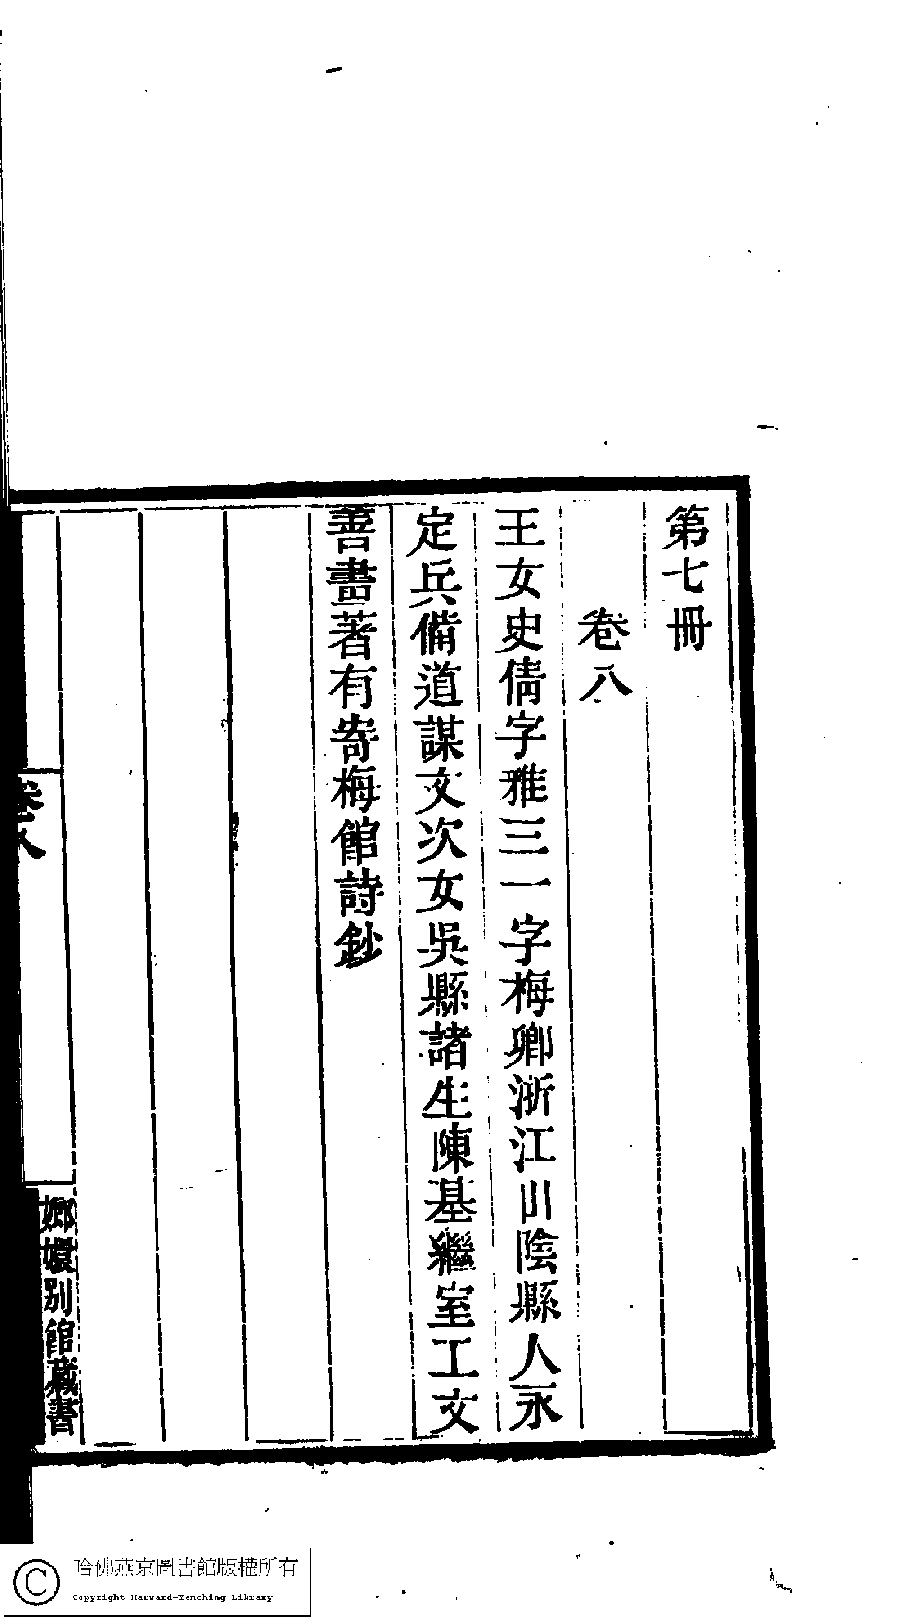 第七冊
卷八
王女史倩字雅三一字梅卿浙江山陰縣人永
定兵備道謀文次女吳縣諸生陳基繼室工文
善畫著有寄梅館詩鈔
卷八
嫏嬛別館藏書
哈佛燕京圖書館版權所有
Copyright Harvard-Yenching Library